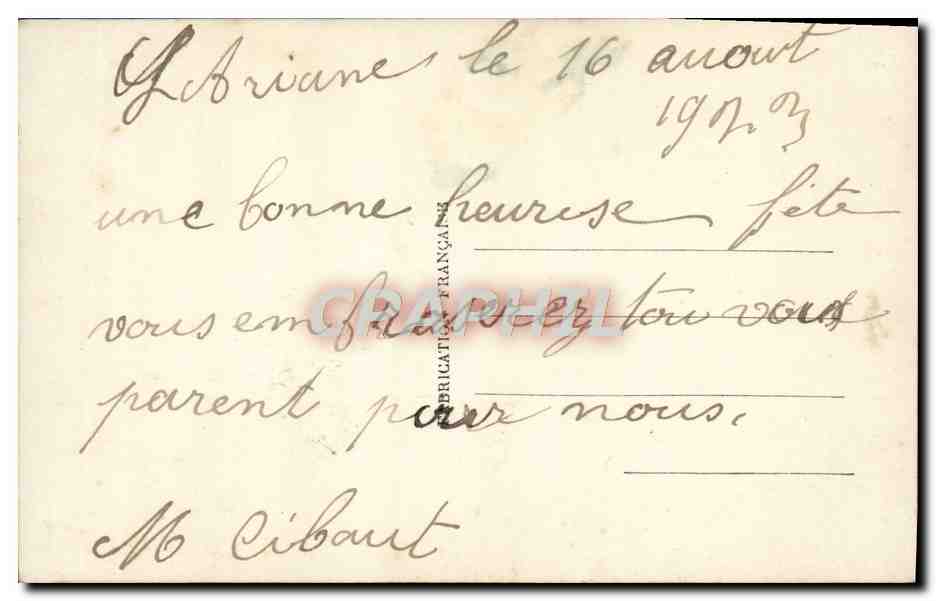 St Ariane le 16 auout
1923
une bonne heurese fête
vous embraserez tou vous
parent pour nous.
M Cibaut
FABRICATION FRANÇAISE
CRAPHIL